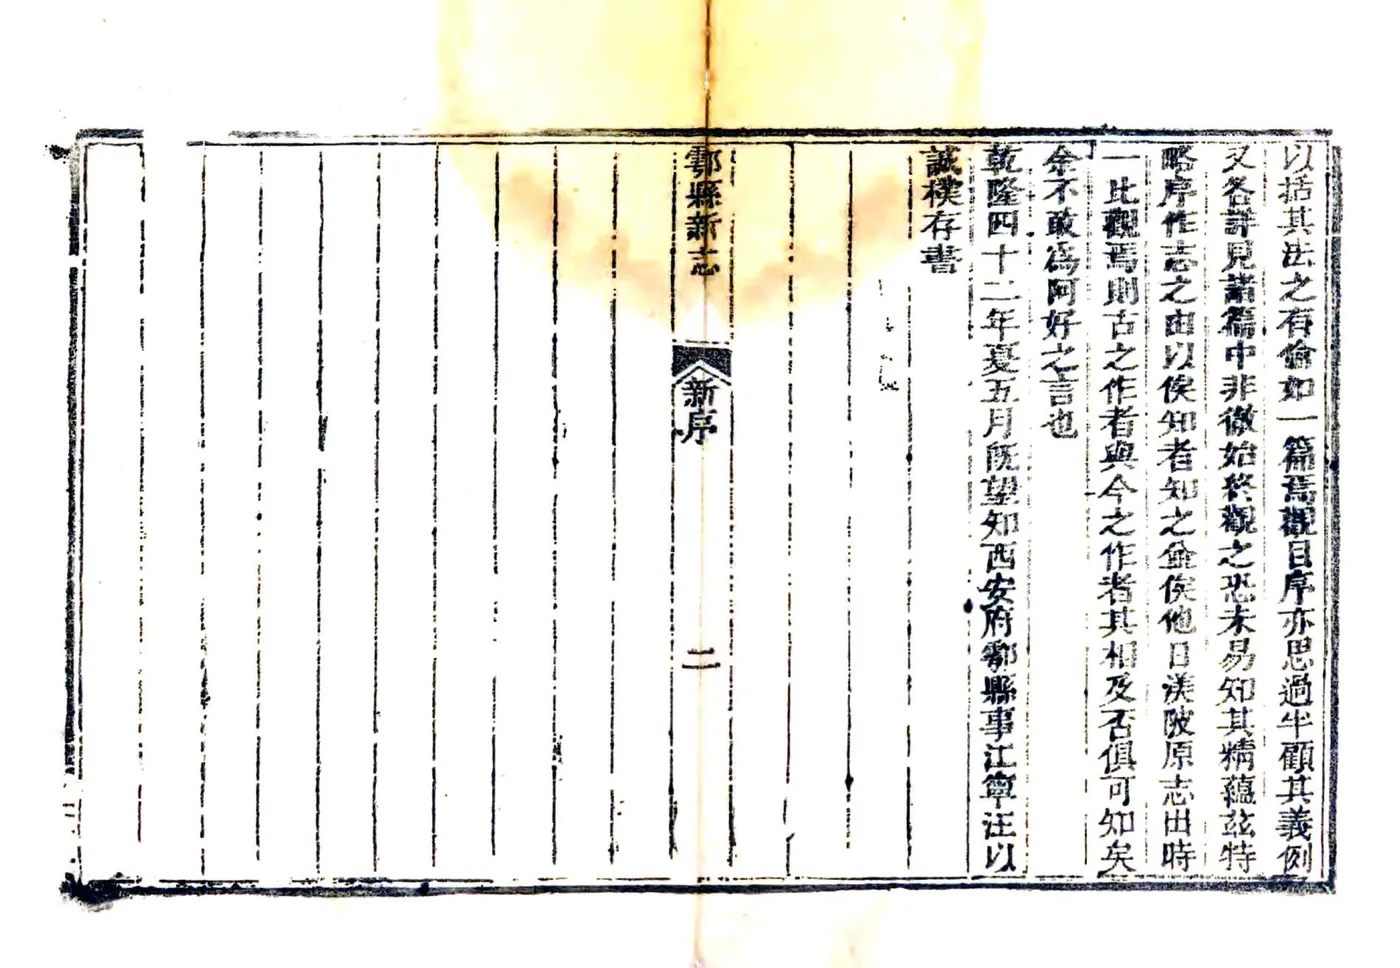 以括其法之有倫如一篇焉觀目序亦思過半顧其義例
又各詳見諸篇中非徹始終觀之恐未易知其精蘊茲特
略序作志之由以俟知者知之僉俟他日渼陂原志出時
一比觀焉則古之作者與今之作者其相及否俱可知矣
余不敢爲阿好之言也
乾隆四十二年夏五月既望知西安府鄠縣事江寧汪以
誠樸存書
鄠縣新志
新序
二